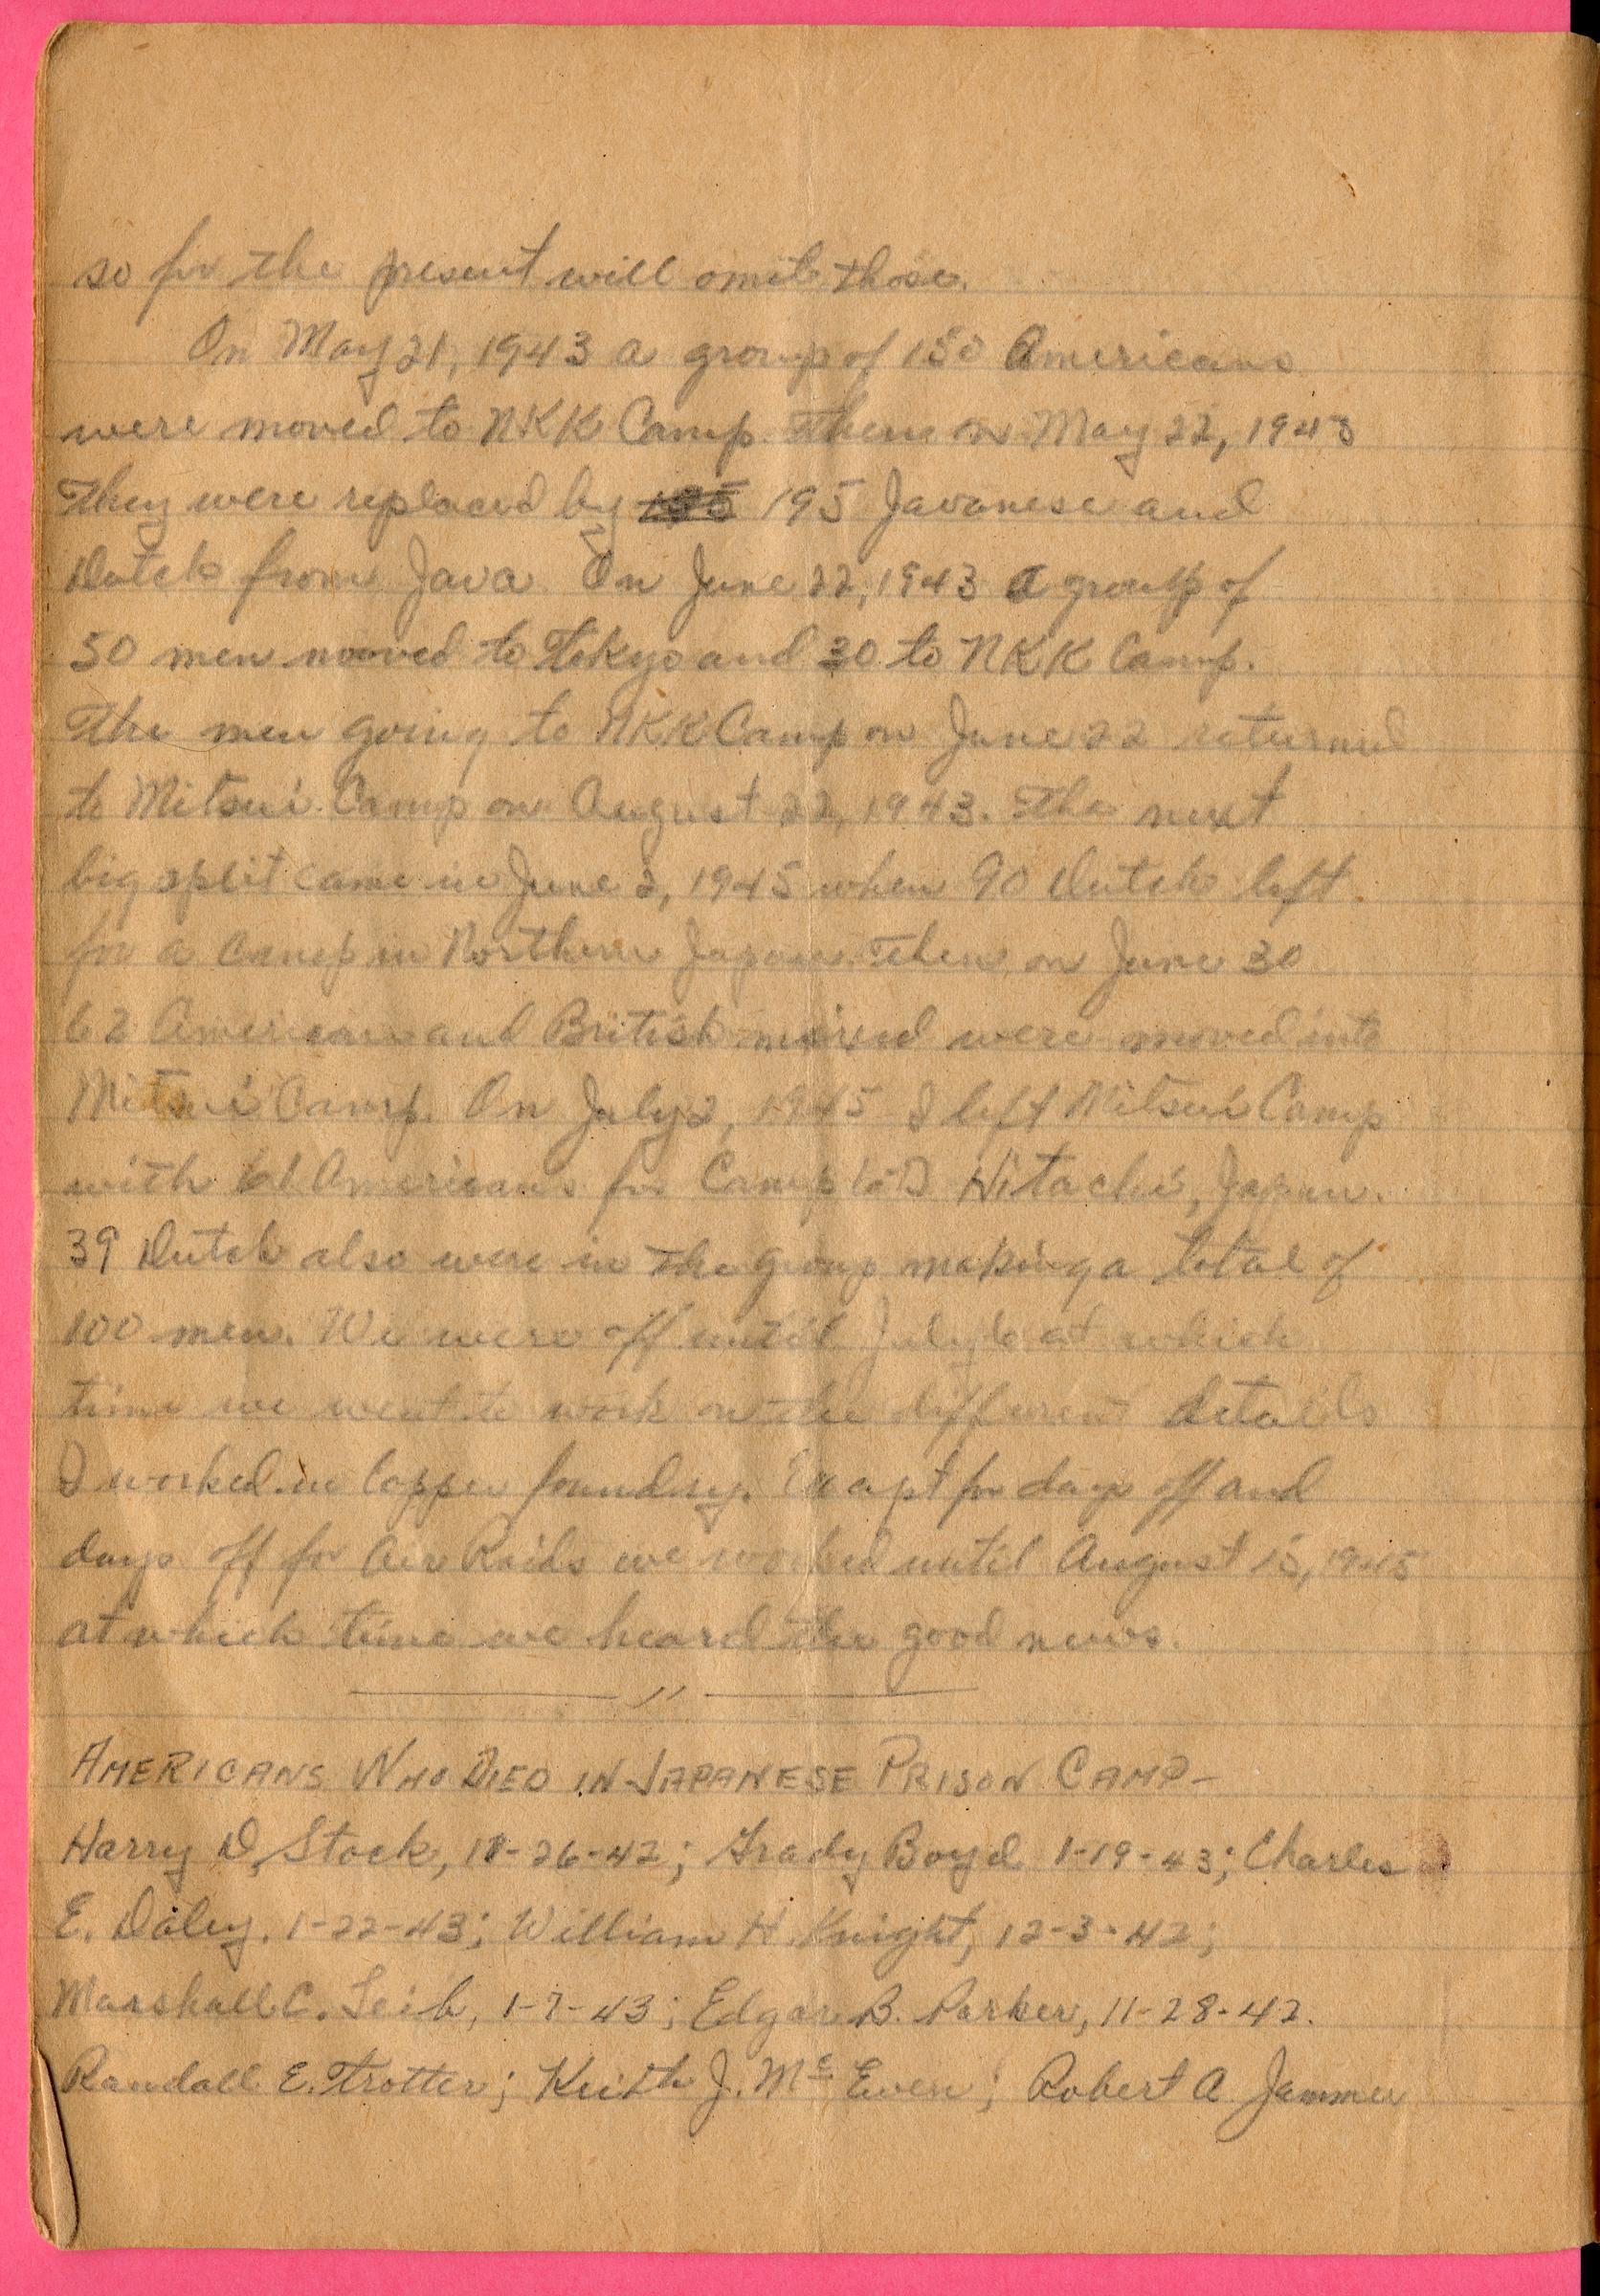 so for the present will omit those.
On May 21, 1943 a group of 150 Americans
were moved to NKK Camp. Then on May 22, 1943
They were replaced by 195 Javanese and
Dutch from Java. On June 22, 1943 a group of
50 men moved to Tokyo and 30 to NKK Camp.
The men going to NKK Camp on June 22 returned
to Mitsui Camp on August 22, 1943. The next
big split came in June 2, 1945 when 90 Dutch left
for a camp in Northern Japan. Then on June 30
62 Americans and British were moved into
Mitsui Camp. On July 2, 1945 I left Mitsui Camp
with 61 Americans for Camp Hitachi, Japan.
39 Dutch also were in the group making a total of
100 men. We were off until July 6 at which
time we went to work on the different details
I worked in Copper foundry. Except for days off and
days off for Air Raids we worked until August 15, 1945
at which time we heard the good news.
AMERICANS WHO DIED IN JAPANESE PRISON CAMP-
Harry D. Stock, 11-26-42; Grady Boyd 1-19-43; Charles
E. Daley. 1-22-43; William H. Knight, 12-3-42;
Marshall C. Leih, 1-7-43; Edgar B. Parker, 11-28-42.
Randall E. Trotter; Keith J. McEwen; Robert A. Jammer